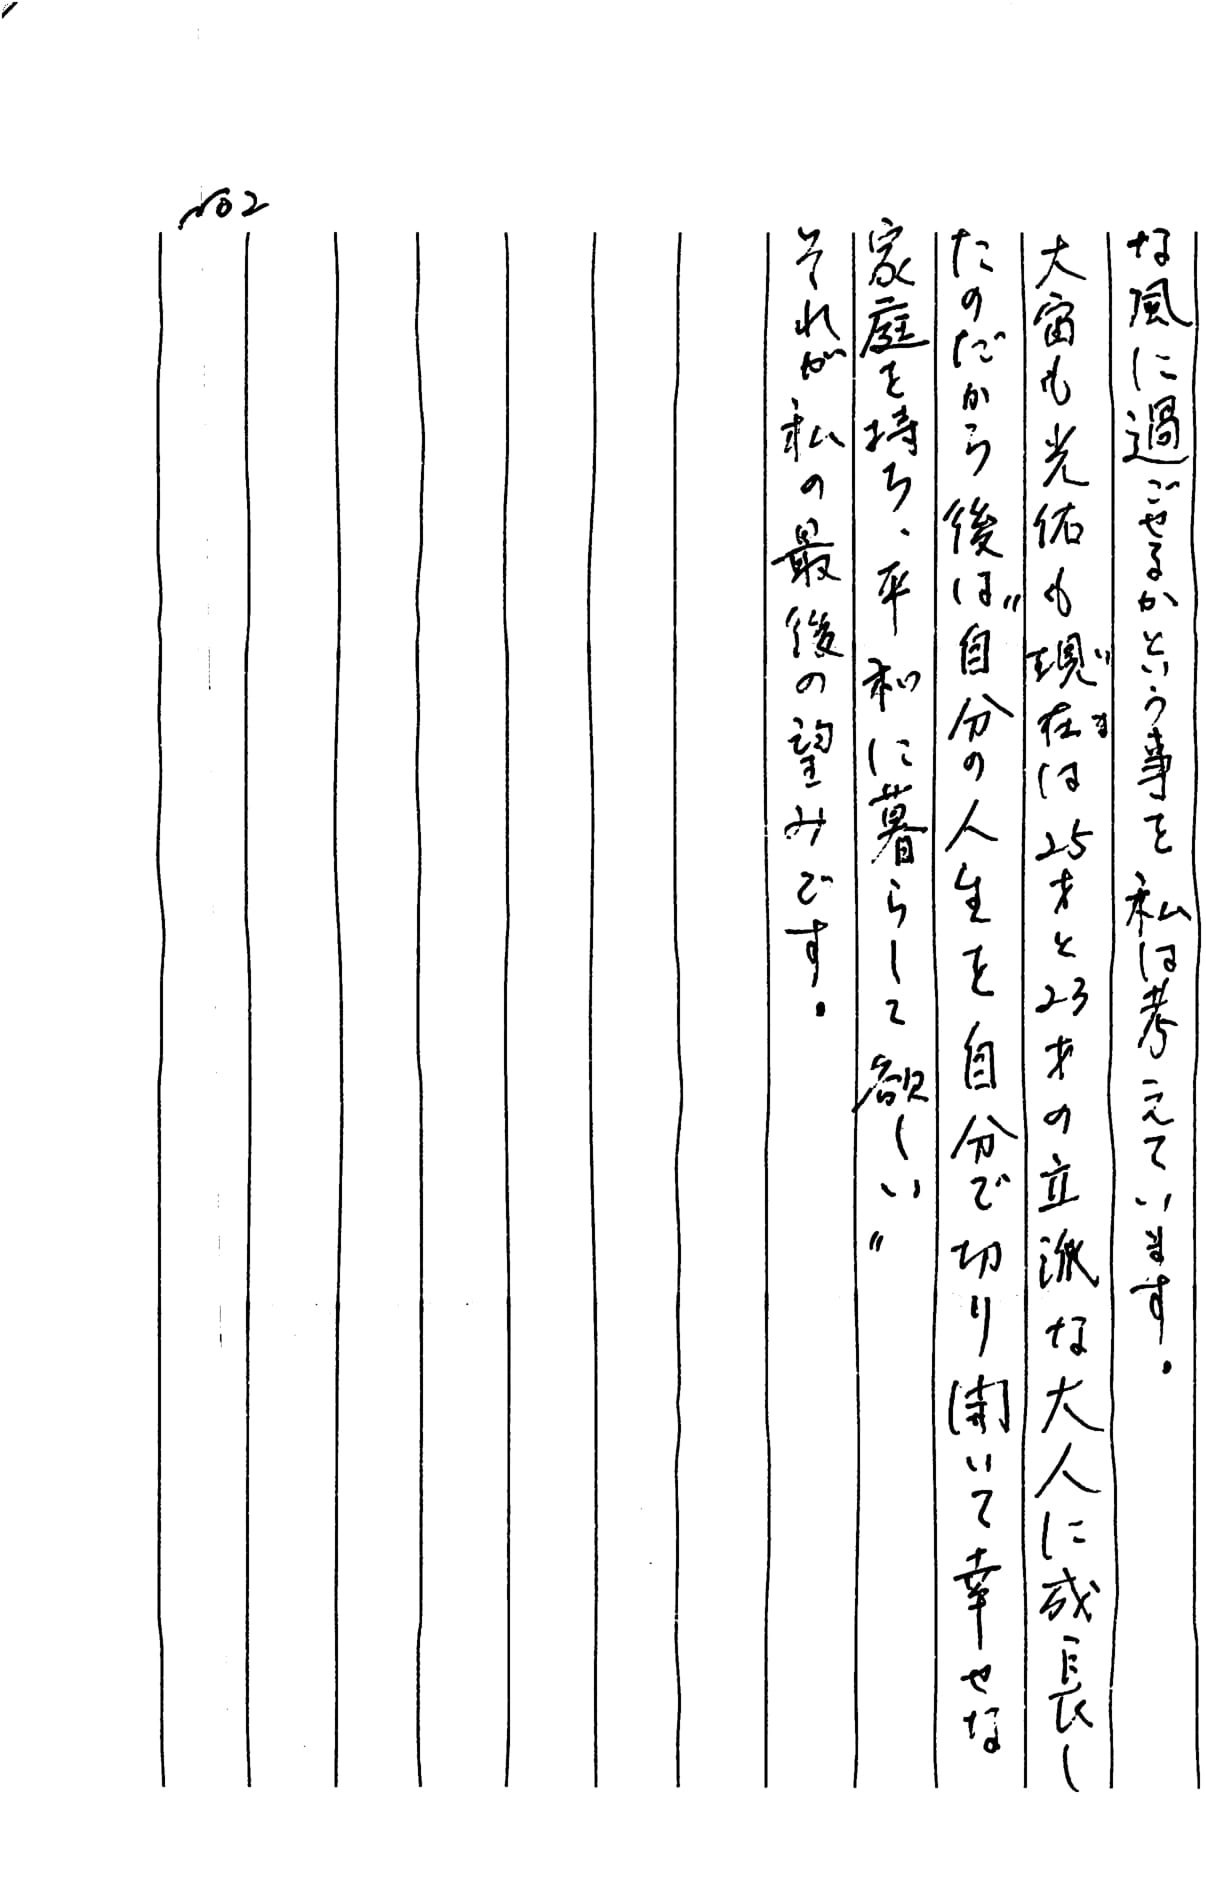 な風に過ごせるかという事を私は考えています。
大宙も光佑も現在は25才と23才の立派な大人に成長し
いま
たのだから後は〃自分の人生を自分で切り開いて幸せな
家庭を持ち、平和に暮らして欲しい〃
それが私の最後の望みです。
No2